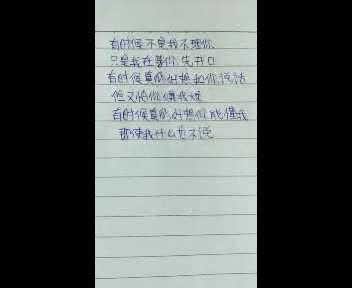 有时候不是我不理你
只是我在等你先开口
有时候真的好想和你说话
但又怕你嫌我烦
有时候真的好想你能懂我
即使我什么也不说